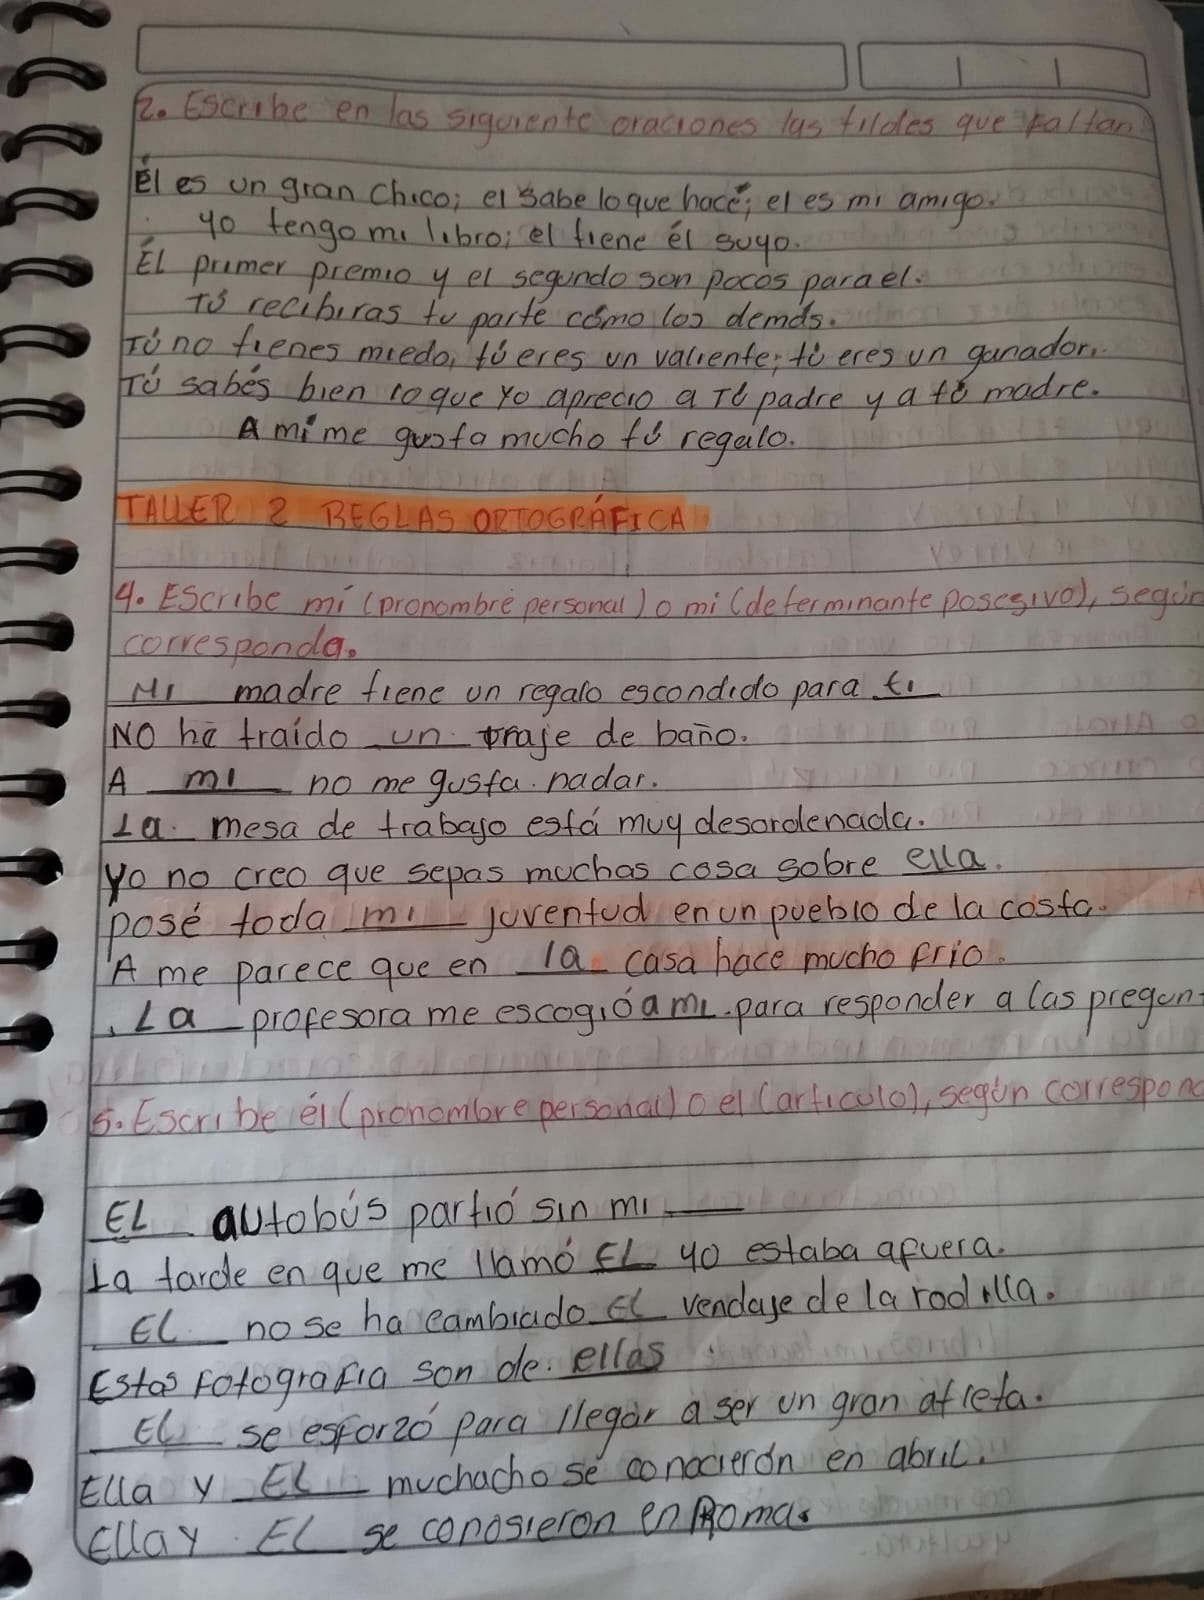 2. Escribe en las siguiente oraciones las tildes que faltan
Él es un gran chico; el sabe lo que hacé; el es mi amigo.
yo tengo mi libro; el tiene él suyo.
ÉL primer premio y el segundo son pocos para el.
Tú recibiras tu parte cómo los demás.
Tú no tienes miedo, tú eres un valiente; tú eres un ganador.
Tú sabés bien lo que yo aprecio a Tú padre y a tú madre.
A mí me gusta mucho tú regalo.
TALLER 2 REGLAS ORTOGRÁFICA
4. Escribe mí (pronombre personal) o mi (determinante posesivo), según
corresponda.
Mi madre tiene un regalo escondido para ti
No he traído un traje de baño.
A mi no me gusta nadar.
La mesa de trabajo está muy desordenada.
Yo no creo que sepas muchas cosa sobre ella.
posé toda mi juventud en un pueblo de la costa.
A me parece que en la casa hace mucho frio.
La profesora me escogió a mi para responder a las pregun
5. Escribe él (pronombre personal) o el (articulo), según correspond
EL autobús partió sin mi
La tarde en que me llamó EL yo estaba afuera.
EL no se ha cambiado EL vendaje de la rodilla.
Estas fotografia son de: ellas
EL se esforzó para llegar a ser un gran atleta.
Ella y EL muchacho se conocierón en abril.
Ella y EL se conosieron en Roma.